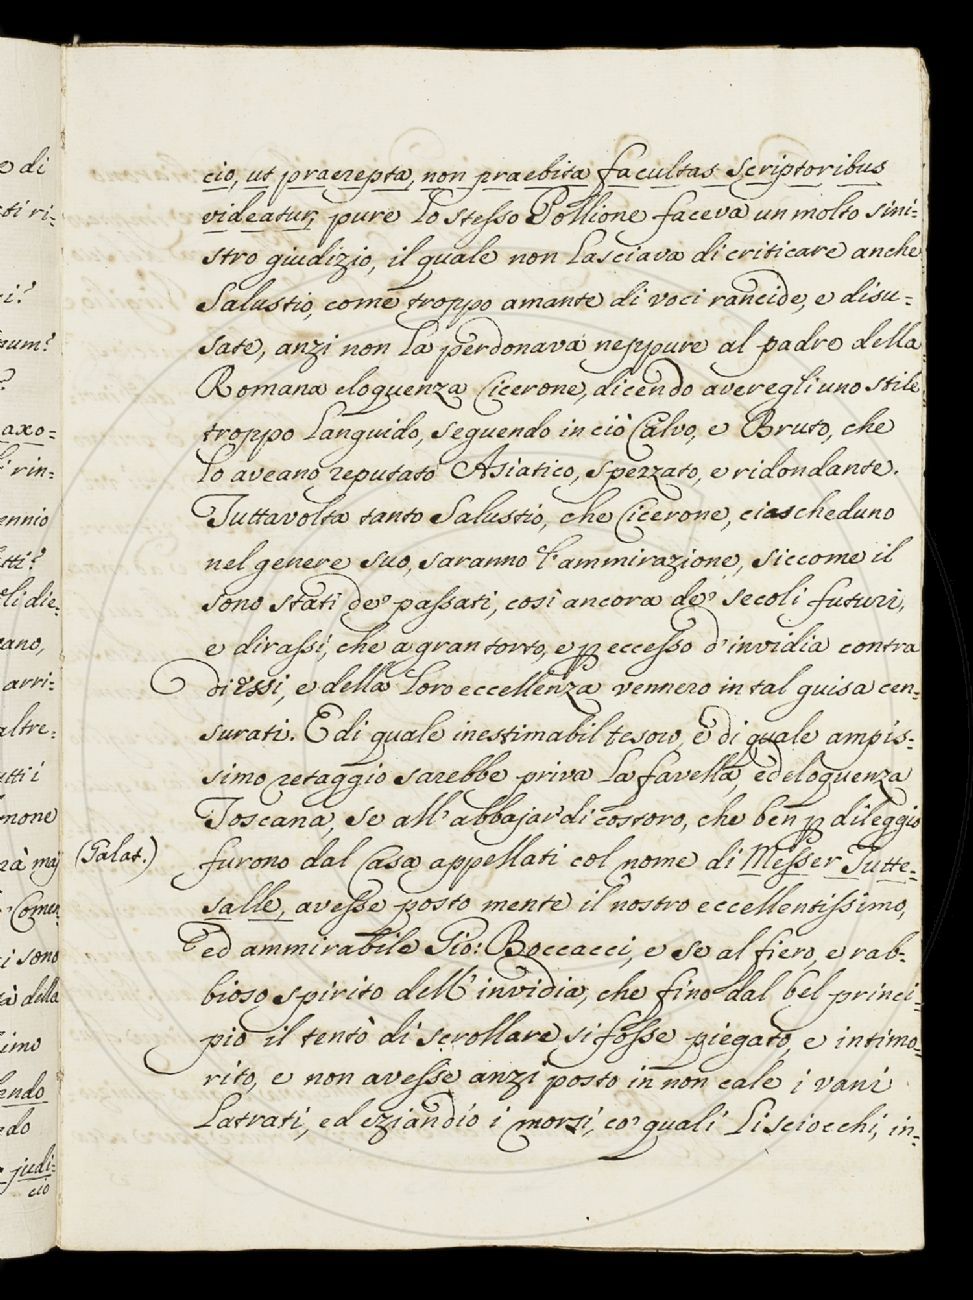 cio, ut praerepta, non praebita facultas Scriptoribus
videatur; pure lo stesso Pollione faceva un molto sini=
stro giudizio, il quale non lasciava di criticare anche
Salustio, come troppo amante di voci rancide, e disu=
sate, anzi non la perdonava neppure al padre della
Romana eloquenza Cicerone, dicendo aver egli uno stile
troppo languido, seguendo in ciò Calvo, e Bruto, che
lo aveano reputato Asiatico, spezzato, e ridondante.
Tuttavolta tanto Salustio, che Cicerone, ciascheduno
nel genere suo, saranno l'ammirazione, siccome il
sono stati de' passati, così ancora de' secoli futuri,
e dirassi, che a gran torto, e p eccesso d'invidia contra
di essi, e della loro eccellenza vennero in tal guisa cen=
surati. E di quale inestimabil tesoro, e di quale ampis=
simo retaggio sarebbe priva la favella, ed eloquenza
Toscana, se all'abbajar di costoro, che ben p dileggio
(Galat.) furono dal Casa appellati col nome di Messer Tutte=
salle, avesse posto mente il nostro eccellentissimo,
ed ammirabile Gio: Boccacci, e se al fiero, e rab=
bioso spirito dell'invidia, che fino dal bel princi=
pio il tentò di scrollare si fosse piegato, e intimo=
rito, e non avesse anzi posto in non cale i vani
latrati, ed eziandio i morsi, co' quali li sciocchi, in=
o di
ti ri=
num?
axo=
rin=
ennio
tti?
li die=
ano,
arri=
altre=
utti i
mone
rà mai
Comen
i sono
tà della
imo
endo
do
judi=
cio